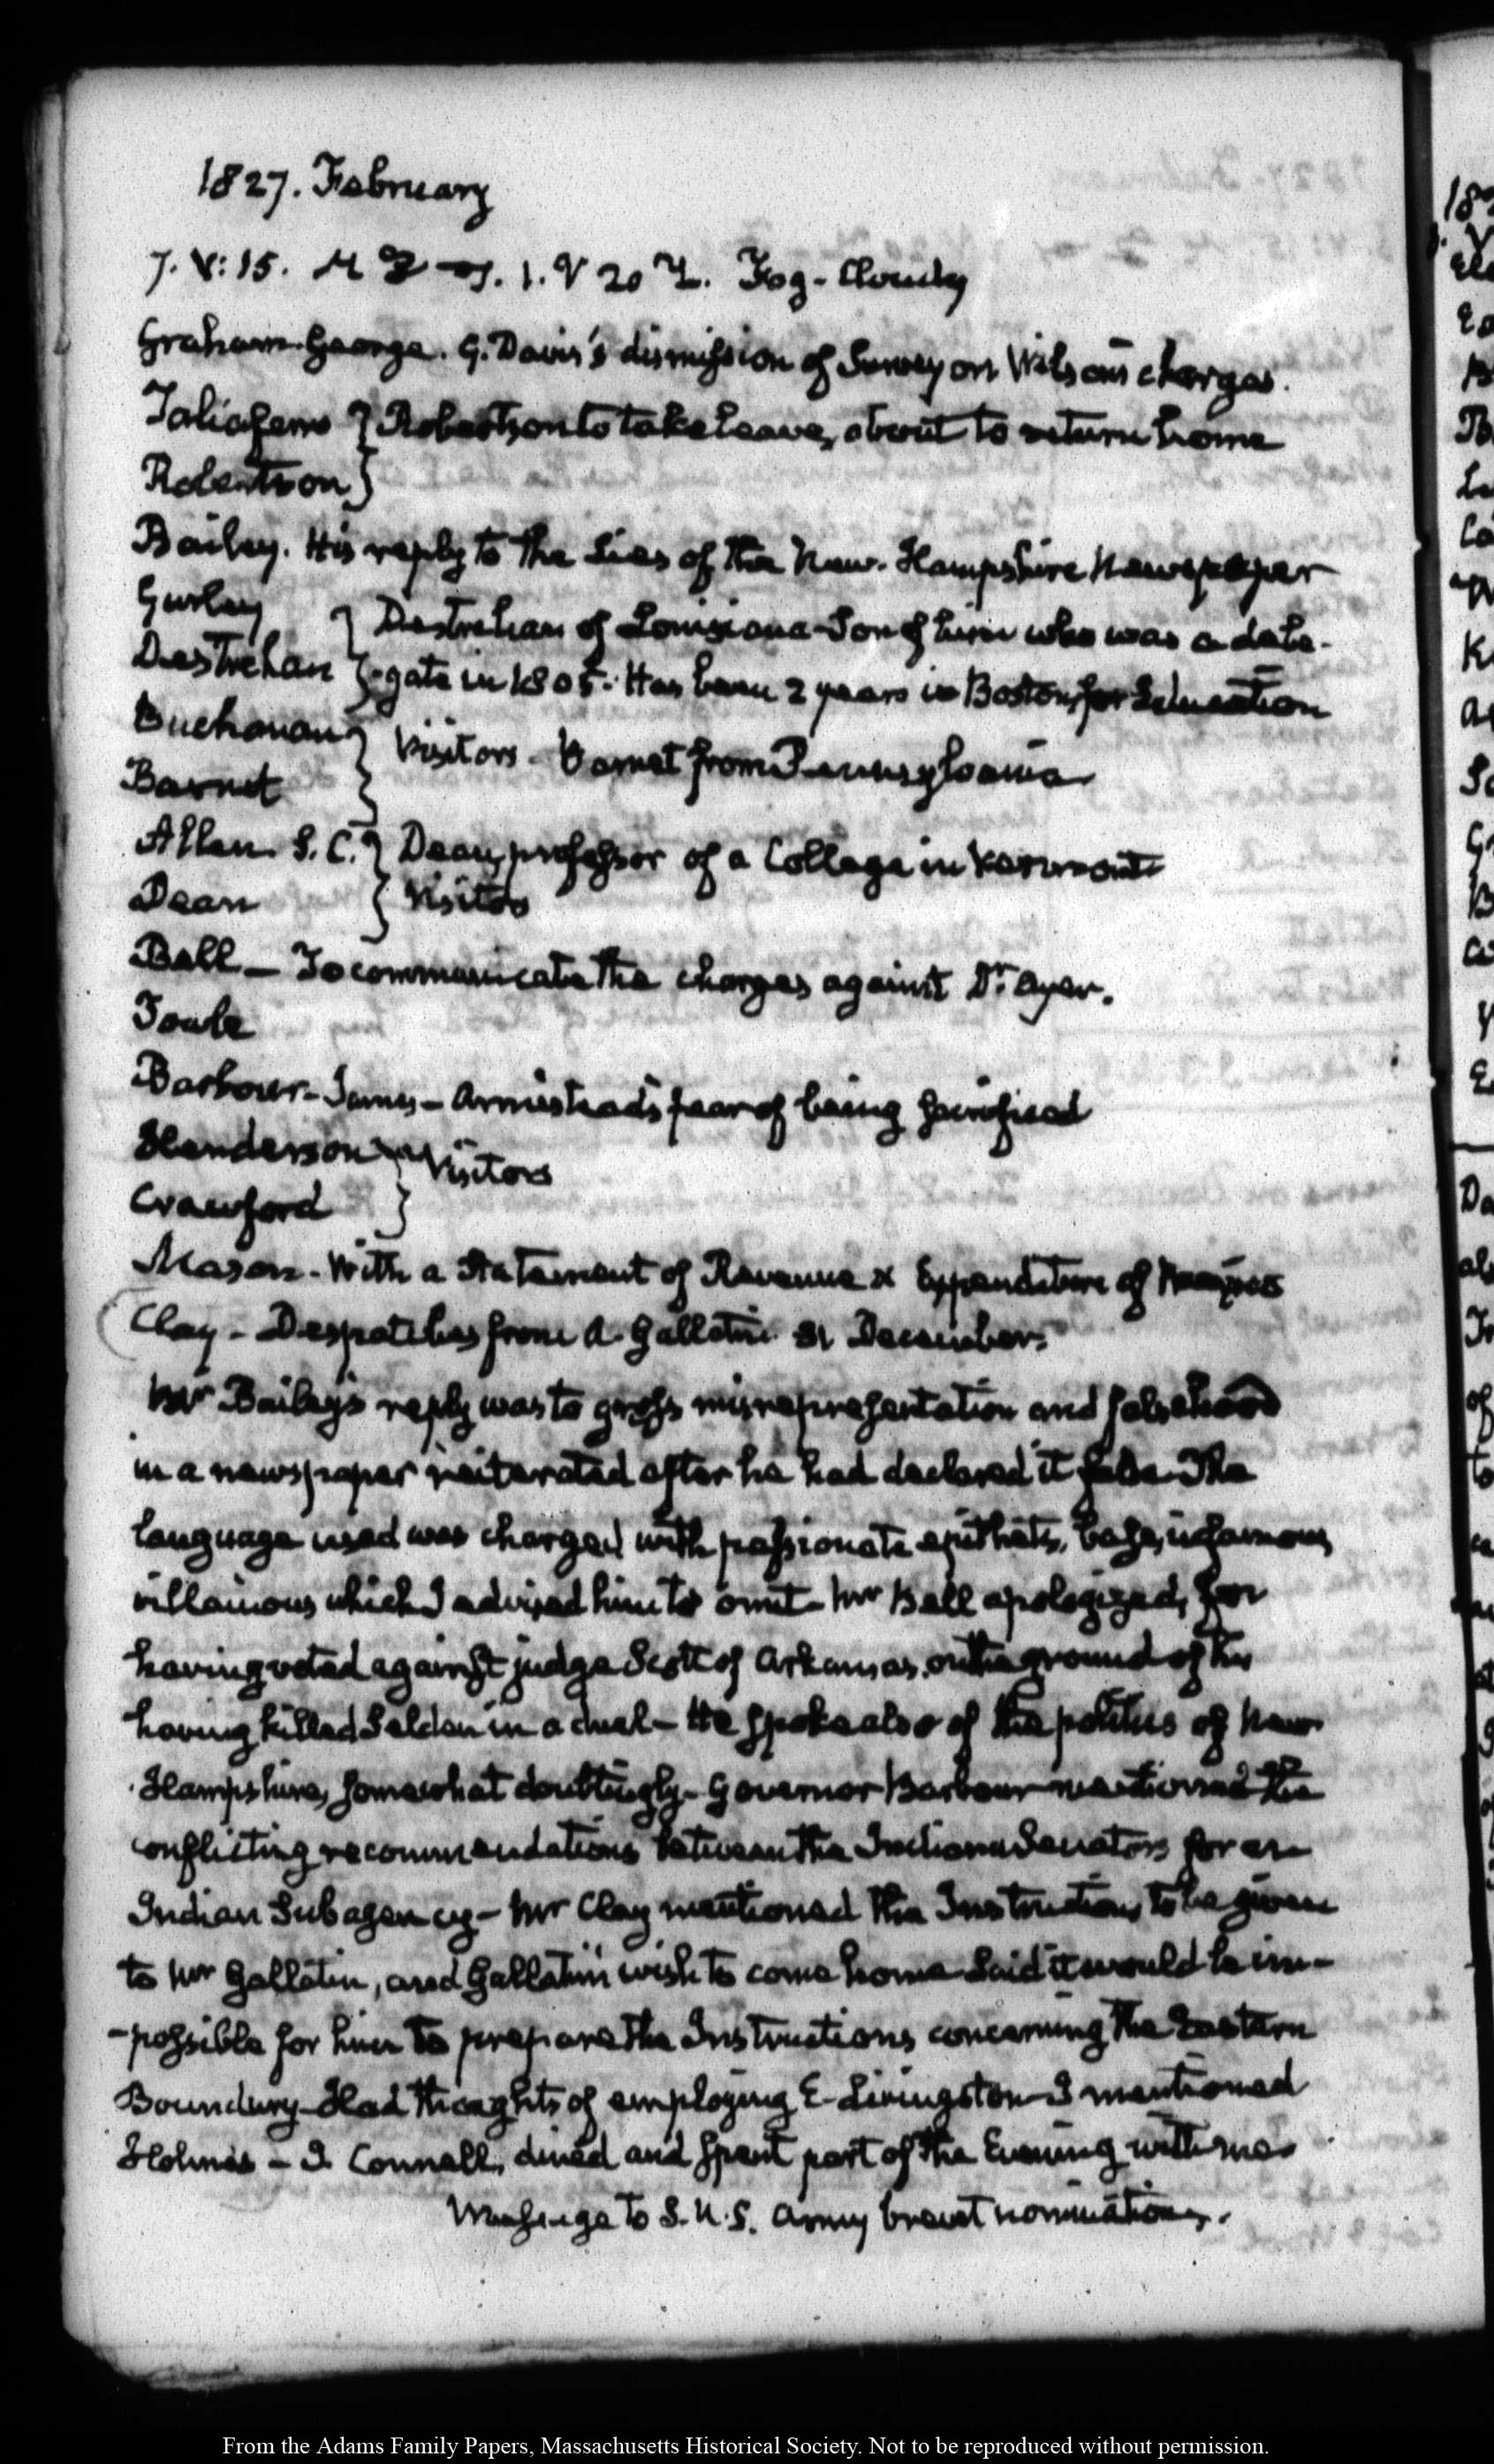 1827. February
7. V:15. 1. V 20 Fog - Cloudy
Graham George. G. Davis's dismission of Survey on Wilson's charges.
Taliaferro } Robertson to take leave, about to return home
Robertson }
Bailey. His reply to the Lies of the New-Hampshire Newspaper
Gurley } Destrehan of Louisiana Son of him who was a dele-
Destrehan } -gate in 1805. Has been 2 years in Boston, for Education
Buchanan } Visitors - Barnet from Pennsylvania
Barnet }
Allen. S. C. } Dean, professor of a College in Vermont
Dean } Visitors
Bell — To communicate the charges against Dr. Ayer.
Towle
Barbour - James - Armistead's fear of being sacrificed
Henderson } Visitors
Crawford }
Mason - With a Statement of Revenue & Expenditure of
Clay - Despatches from A. Gallatin 21 December.
Mr Bailey's reply was to gross misrepresentation and falsehood
in a newspaper reiterated after he had declared it false. The
language used was charged with passionate epithets, base, infamous,
villainous which I advised him to omit - Mr Bell apologized, for
having voted against judge Scott of Arkansas, on the ground of his
having killed Selden in a duel - He spoke also of the politics of New-
Hampshire, somewhat doubtingly - Governor Barbour mentioned the
conflicting recommendations between the Indiana Senators for an
Indian Subagency - Mr Clay mentioned the Instructions to be given
to Mr Gallatin, and Gallatin's wish to come home - Said it would be im-
-possible for him to prepare the Instructions concerning the Eastern
Boundary - Had thoughts of employing E. Livingston - I mentioned
Holmes - J. Connell, dined and spent part of the Evening with me.
Message to S. U. S. Army brevet nominations.
From the Adams Family Papers, Massachusetts Historical Society. Not to be reproduced without permission.